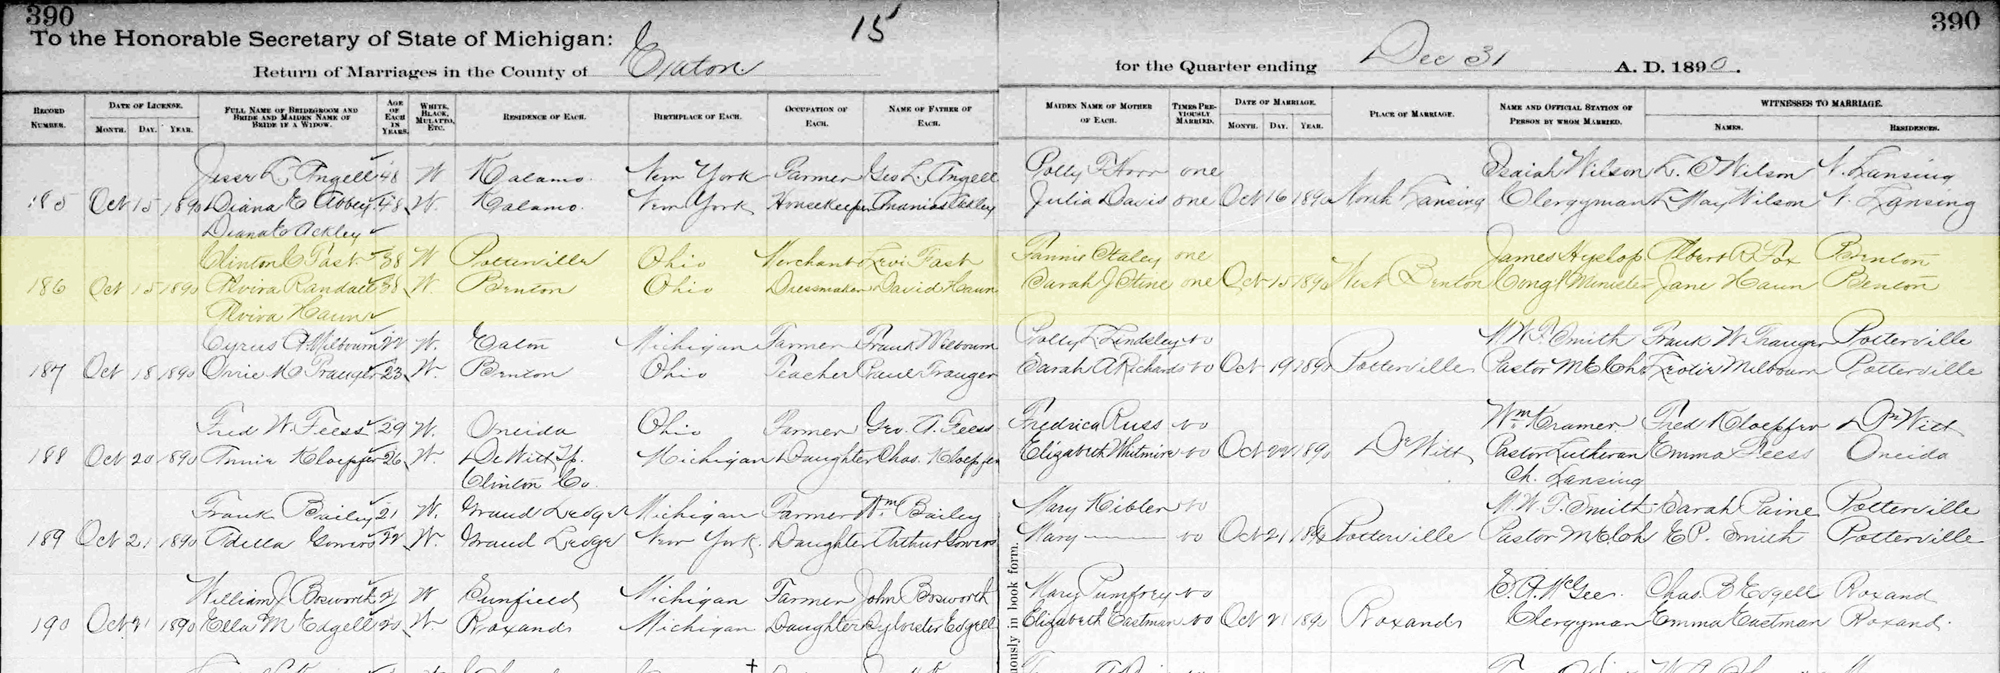 390
15
390
To the Honorable Secretary of State of Michigan:
Return of Marriages in the County of Eaton
for the Quarter ending Dec 31 A. D. 1890.
RECORD NUMBER. DATE OF LICENSE. MONTH. DAY. YEAR. FULL NAME OF BRIDEGROOM AND BRIDE AND MAIDEN NAME OF BRIDE IF A WIDOW. AGE OF EACH IN YEARS. WHITE, BLACK, MULATTO, ETC. RESIDENCE OF EACH. BIRTHPLACE OF EACH. OCCUPATION OF EACH. NAME OF FATHER OF EACH. MAIDEN NAME OF MOTHER OF EACH. TIMES PREVIOUSLY MARRIED. DATE OF MARRIAGE. MONTH. DAY. YEAR. PLACE OF MARRIAGE. NAME AND OFFICIAL STATION OF PERSON BY WHOM MARRIED. WITNESSES TO MARRIAGE. NAMES. RESIDENCES.
Jesse L. Angell 48 W Kalamo New York Farmer Geo L. Angell Polly one Isaiah Wilson L. O Wilson N. Lansing
185 Oct 15 1890 Diana E Abbey 48 W. Kalamo New York Housekeeper Ackley Julia Davis one Oct 16 1890 North Lansing Clergyman May Wilson N. Lansing
Ackley
Clinton C Fast 38 W Potterville Ohio Merchant Levi Fast Fannie Staley one James Hyslop Albert R. Fox Benton
186 Oct 15 1890 Alvira Randall 38 W. Benton Ohio Dressmaker David Haun Sarah J Stine one Oct 15 1890 West Benton Congl Minister Jane Haun Benton
Alvira Haun
Cyrus A Milbourn 22 W. Eaton Michigan Farmer Frank Milbourn Polly Lindsley no M. W. F. Smith Frank W. Trauger Potterville
187 Oct 18 1890 Orrie K Trauger 23 W. Benton Ohio Teacher Paul Trauger Sarah A Richards no Oct 19 1890 Potterville Pastor M E Ch. Milbourn Potterville
Fred W. Feess 29 W. Oneida Ohio Farmer Geo. A. Feess Fredrica Russ no Wm Kramer Fred Kloepfer De Witt
188 Oct 20 1890 Annie Kloepfer 26 W. De Witt Tp. Michigan Daughter Chas. Kloepfer Elizabeth Whitmire no Oct 22 1890 De Witt Pastor Lutheran Emma Feess Oneida
Clinton Co. Ch. Lansing
Frank Bailey 21 W. Grand Ledge Michigan Farmer Wm Bailey Mary Kibler no M. W. F. Smith Sarah Paine Potterville
189 Oct 21 1890 Adella Gowers 22 W. Grand Ledge New York. Daughter Arthur Gowers Mary no Oct 21 1890 Potterville Pastor M.E.Ch E P. Smith Potterville
William J Bosworth W Sunfield Michigan Farmer John Bosworth Mary Pumfrey no E. A. McGee Chas. B Edgell Roxand
190 Oct 21 1890 Ella M Edgell W. Roxand Michigan Daughter Sylvester Edgell Elizabeth Eastman no Oct 21 1890 Roxand Clergyman Emma Eastman Roxand.
in book form.